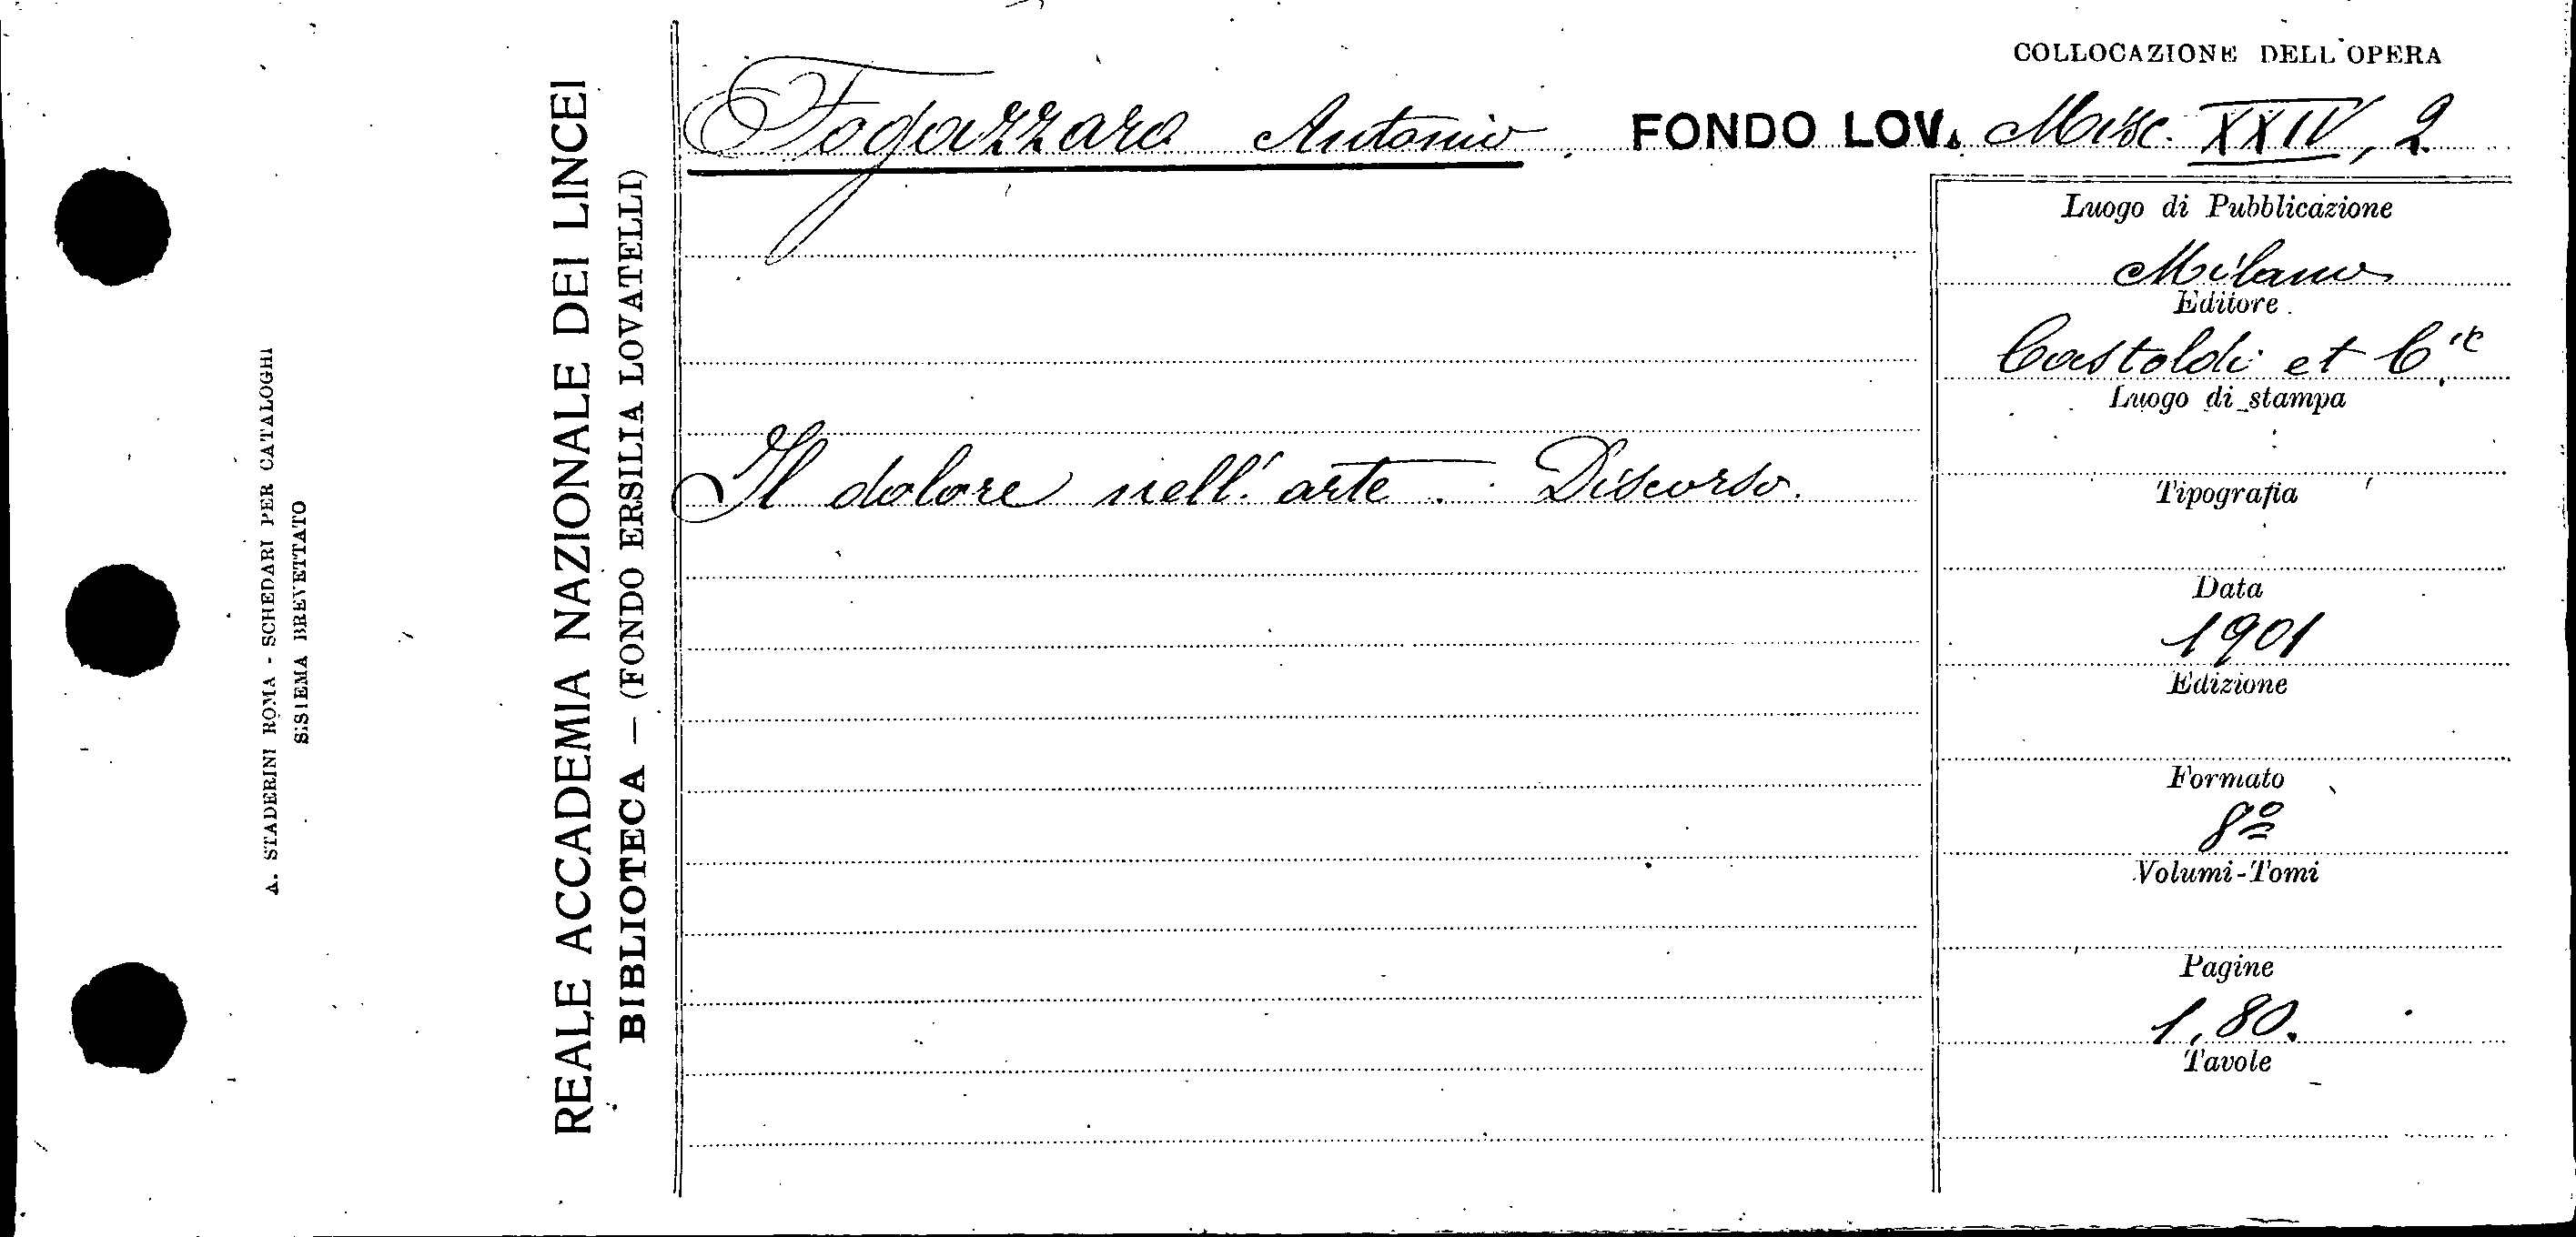 A. STADERINI ROMA - SCHEDARI PER CATALOGHI
SISTEMA BREVETTATO
REALE ACCADEMIA NAZIONALE DEI LINCEI
BIBLIOTECA — (FONDO ERSILIA LOVATELLI)
COLLOCAZIONE DELL'OPERA
Fogazzaro Antonio FONDO LOV. Misc. XXIV, 2
Il dolore nell'arte. Discorso.
Luogo di Pubblicazione
Milano
Editore
Castoldi et C.ie
Luogo di stampa
Tipografia
Data
1901
Edizione
Formato
8º
Volumi-Tomi
Pagine
1,80.
Tavole